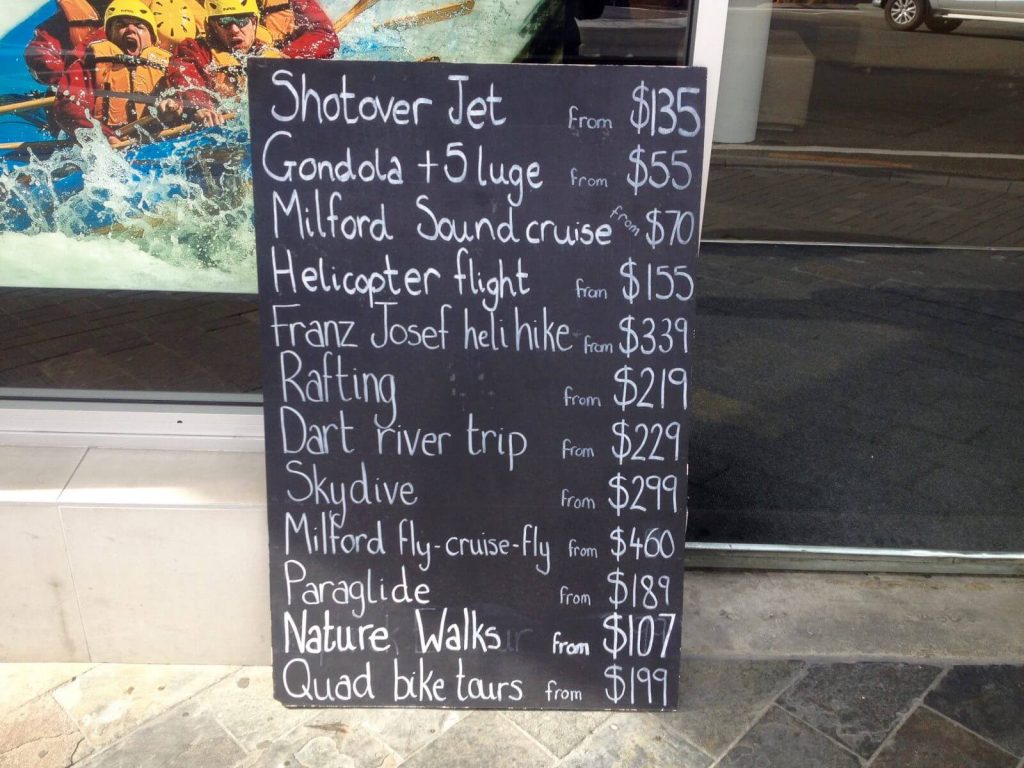 Shotover Jet from $135
Gondola +5 luge from $55
Milford Sound cruise from $70
Helicopter flight from $155
Franz Josef heli hike from $339
Rafting from $219
Dart river trip from $229
Skydive from $299
Milford fly-cruise-fly from $460
Paraglide from $189
Nature Walks from $107
Quad bike tours from $199